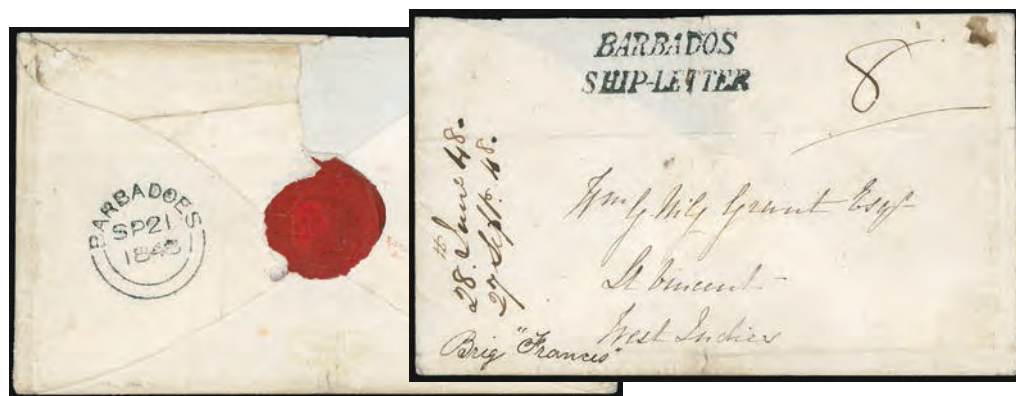 BARBADOES
SP21
1848
BARBADOS
SHIP-LETTER
8
28th June 48.
27 Sept. 48.
Wm G Grant Esqr
St Vincent
West Indies
Brig "Francis"